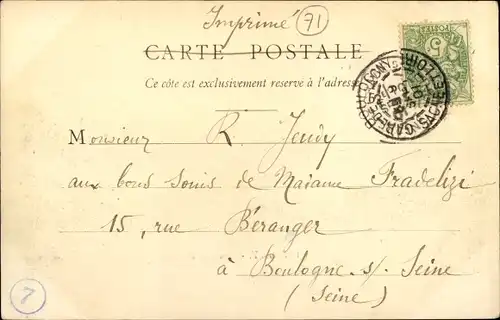 Imprimé 71
5
CARTE POSTALE
Ce côté est exclusivement réservé à l'adresse
Monsieur R. Jeudy
aux bons soins de Madame Fradelizi
15, rue Béranger
à Boulogne s/ Seine
(Seine)
7